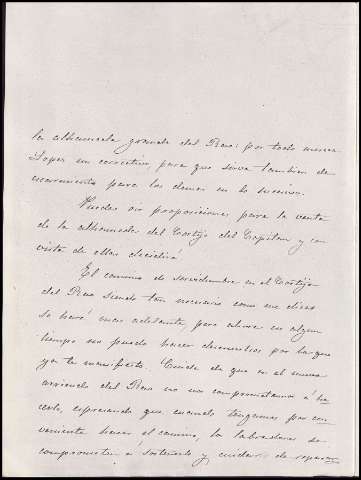 la alhambada grande del Raso: por todo merece
Lopez un correctivo, para que sirva tambien de
escarmiento para los demas en lo sucesivo.
Puedes oir proposiciones para la venta
de la alhambada del Cortijo del Capitan y en
vista de ellas decidiré.
El camino de servidumbre en el Cortijo
del Raso siendo tan necesario como me dices
se hará mas adelante, pero ahora en algun
tiempo no puedo hacer desembolsos por lo que
ya te manifiesto. Cuida de que en el nuevo
arriendo del Raso no nos comprometamos á ha
cerlo, expresando que, cuando tengamos por con
veniente hacer el camino, los labradores se
comprometen á sostenerlo y cuidarse de reparar